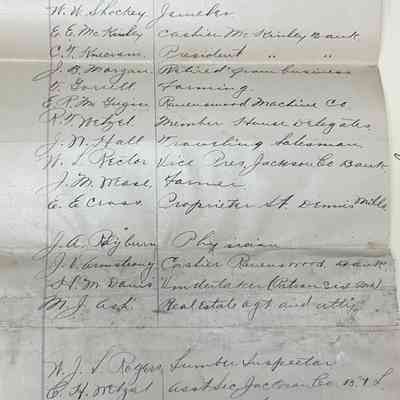 W. W. Shockey Jeweler
E. E. McKinley Cashier McKinley Bank
C. T. President " "
J. B. Morgan Retired from business
T. Gorrell Farming
E. P. Ravenswood Machine Co.
R. T. Wetzel Member House Delegates
J. N. Hall Traveling Salesman
W. S. Rector Vice Pres. Jackson Co Bank
J. M. Wease, Farmer
E. E. Cross, Proprietor St. Dennis Mills
J. A. Physician
J. V. Armstrong Cashier Ravenswood Bank
M. Davis Undertaker
M. J. Ash Real Estate agt and atty
W. J. S. Rogers, Lumber Inspector
C. H. Wetzel asst Sec Jackson Co B & L